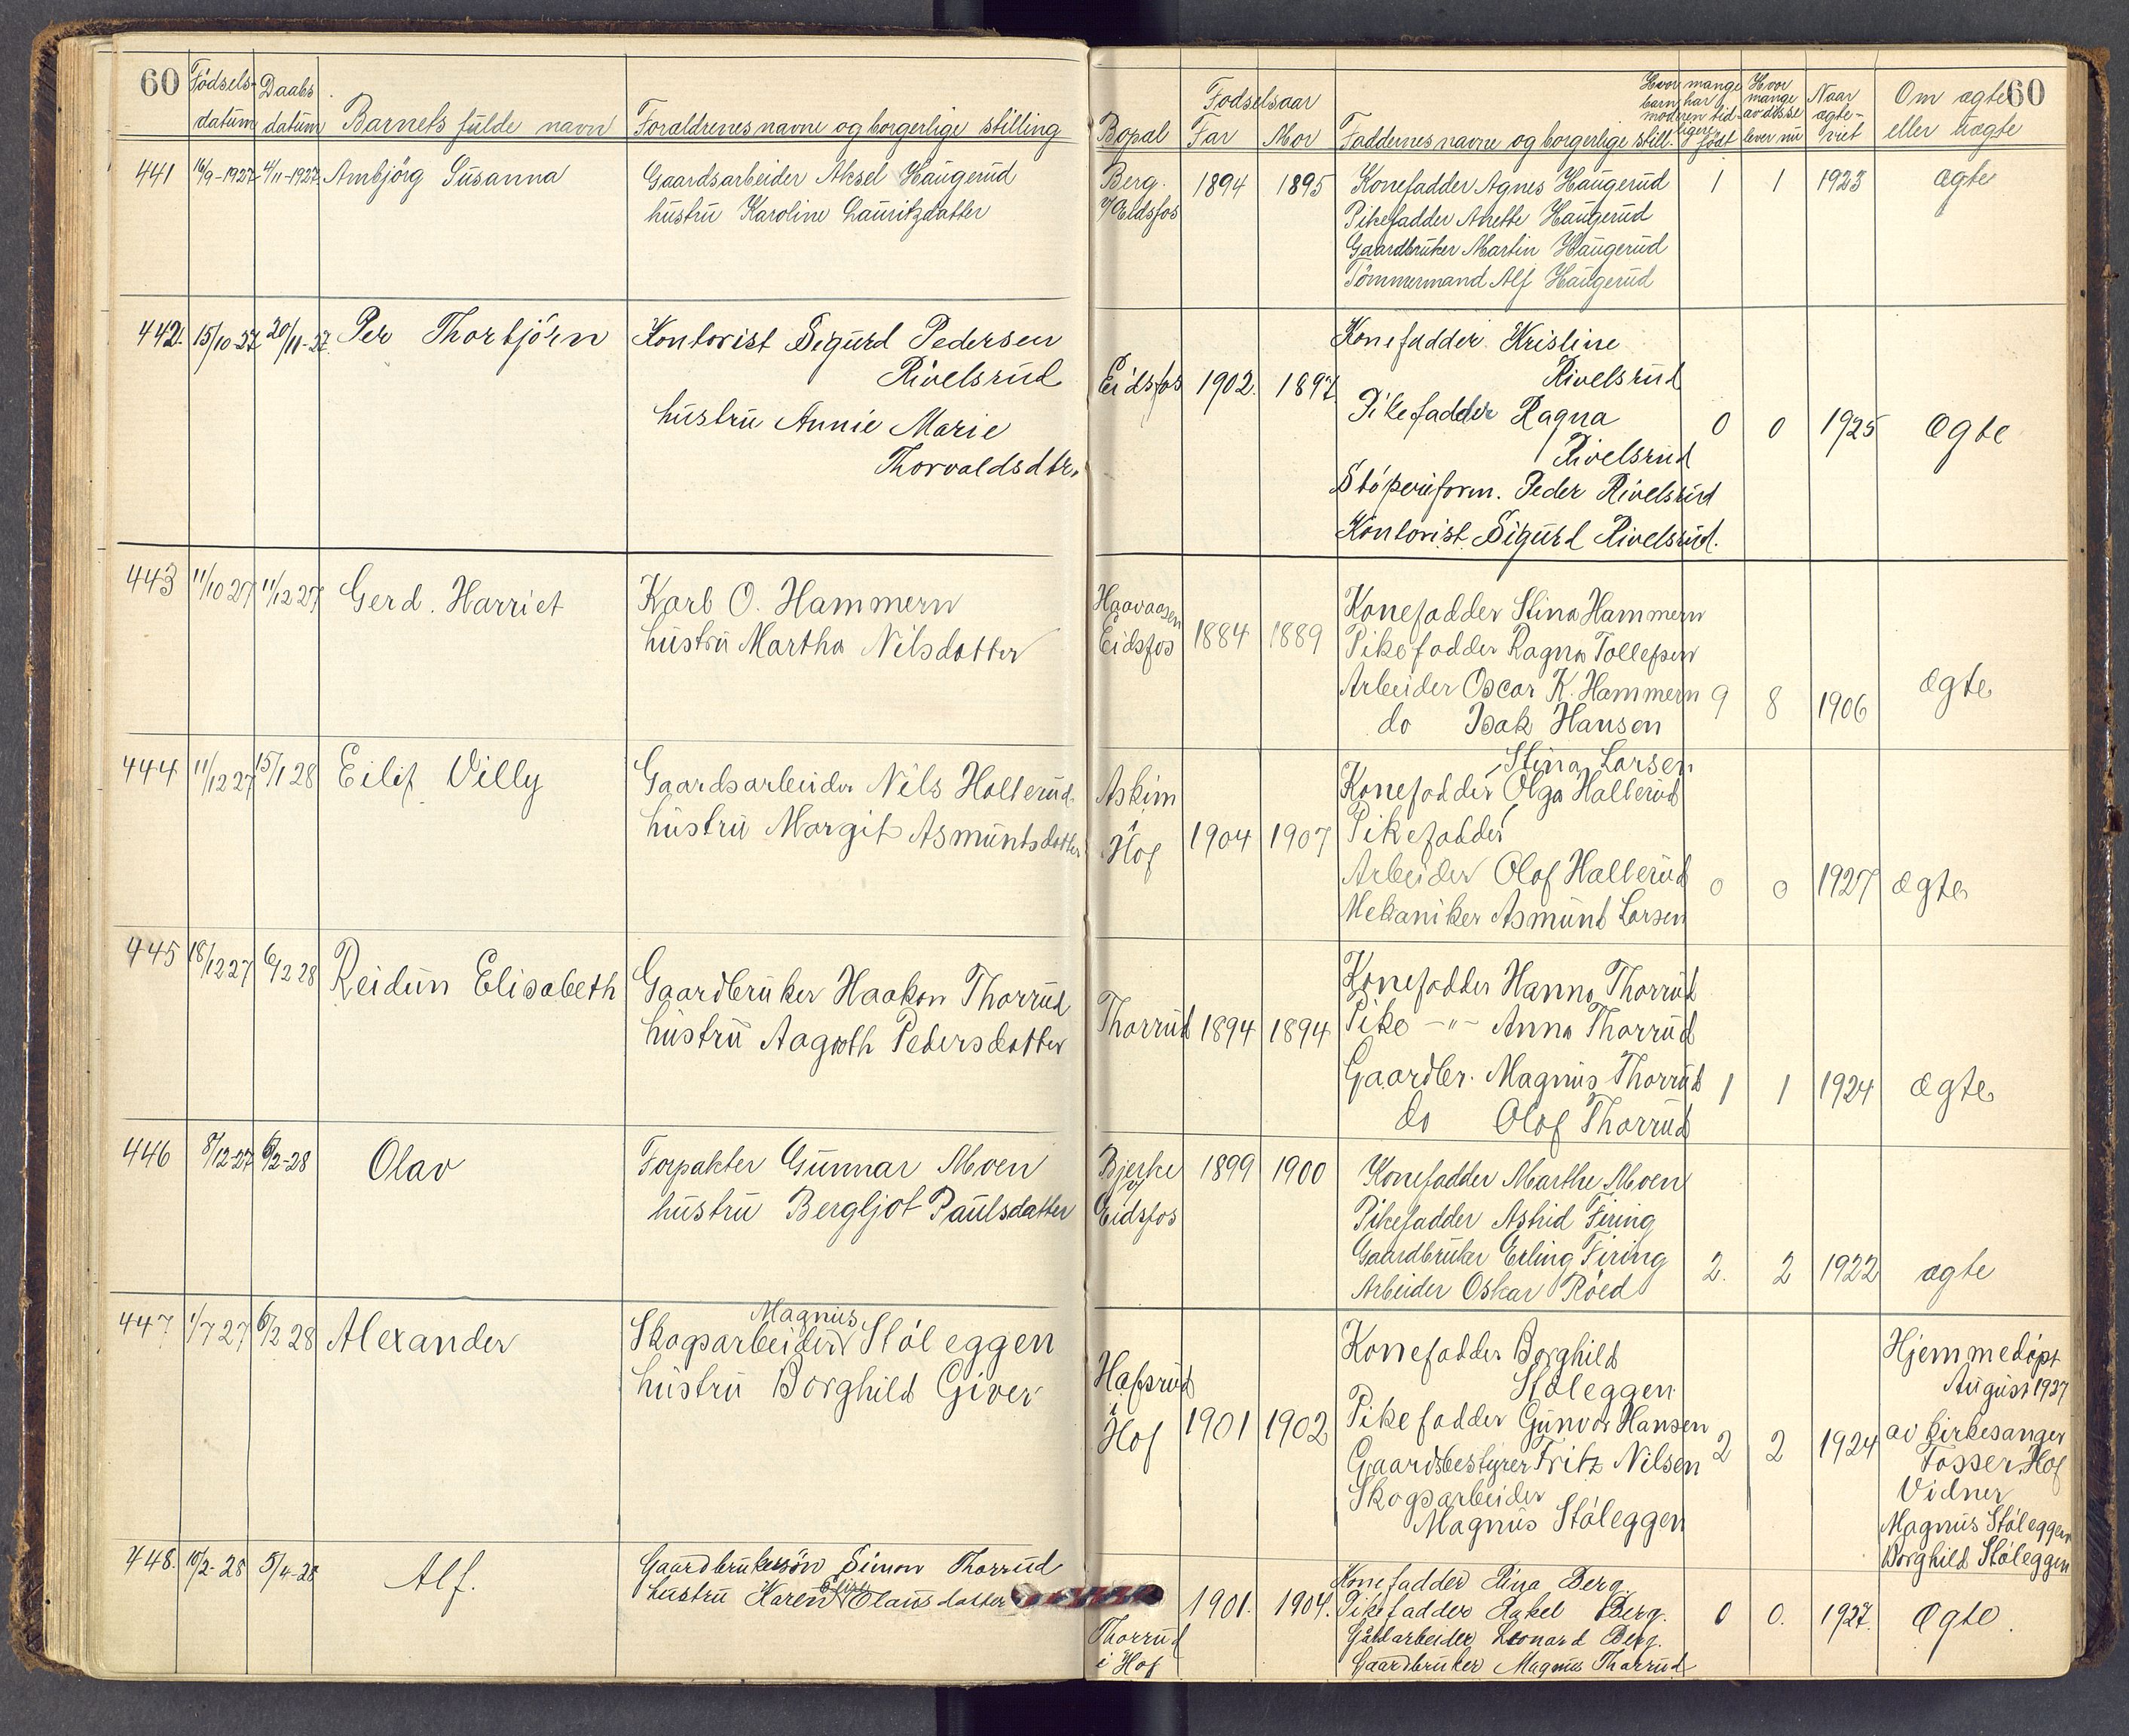 60
Fødsels-datum
Daabs datum
Barnets fulde navn
Forældrenes navne og borgerlige stilling
Bopæl
Fødselsaar
Far
Mor
Faddernes navne og borgerlige still.
Hvor mange barn har moderen tidligere født
Hvor mange av disse lever nu
Naar ægte-viet
Om ægte eller uægte
60
441 16/9-1927 4/11-1927 Arnbjörg Susanna
Gaardsarbeider Aksel Haugerud
hustru Karoline Lauritzdatter
Berg.
v/Eidsfos
1894 1895
Konefadder Agnes Haugerud
Pikefadder Anette Haugerud
Gaardbruker Martin Haugerud
Tömmermand Alf Haugerud
1 1 1923 ægte
442. 15/10-27 20/11-27. Per Thorbjörn
Kontorist Sigurd Pedersen
Rivelsrud
hustru Annie Marie
Thorvaldsdtr.
Eidsfos 1902. 1897.
Konefadder Kristine
Rivelsrud
Pikefadder Ragna
Rivelsrud
Støperiform. Peder Rivelsrud
Kontorist Sigurd Rivelsrud.
0 0 1925 Ægte
443 11/10 27 11/12 27 Gerd. Harriet
Karl O. Hammern
hustru Martha Nilsdatter
Haavaasen
Eidsfos
1884 1889
Konefadder Stina Hammern
Pikefadder Ragna Tollefsen
Arbeider Oscar K. Hammern
do Isak Hansen
9 8 1906 Ægte
444 11/12 27 15/1 28 Eilif Villy
Gaardsarbeider Nils Hallerud.
hustru Margit Asmuntsdatter
Askim
i
Hof
1904 1907
Stina Larsen
Konefadder Olga Hallerud
Pikefadder
Arbeider Olaf Hallerud
Mekaniker Asmunt Larsen
0 0 1927 Ægte
445 18/12 27 6/2 28 Reidun Elisabeth
Gaardbruker Haakon Thorrud
hustru Aagoth Pedersdatter
Thorrud 1894 1894
Konefadder Hanna Thorrud
Pike -"- Anna Thorrud
Gaardbr. Magnus Thorrud
do Olaf Thorrud
1 1 1924 Ægte
446 8/12-27 6/2-28 Olav
Forpakter Gunnar Moen
hustru Bergljot Paulsdatter
Bjerke
v/
Eidsfos
1899 1900
Konefadder Marthe Moen
Pikefadder Astrid Firing
Gaardbruker Erling Firing
Arbeider Oskar Röed
2. 2 1922 ægte
447 1/7 27 6/2 28 Alexander
Magnus
Skogsarbeider Støleggen
hustru Borghild Giver
Hafsrud
i
Hof
1901 1902
Konefadder Borghild
Støleggen
Pikefadder Gunvor Hansen
Gaardsbestyrer Fritz Nilsen
Skogsarbeider
Magnus Støleggen
2 2 1924
Hjemmedøpt
August 1927
av kirkesanger
Fosser, Hof
Vidner
Magnus Støleggen
Borghild Støleggen
448. 10/2-28 5/4-28 Alf.
Gaardbrukersøn Simon Thorrud
hustru Karen Olausdatter
Thorrud
i Hof
1901. 1904.
Konefadder Rina Berg.
Pikefadder Rakel Berg.
Gårdarbeider Leonard Berg.
Gaardbruker Magnus Thorrud
0 0. 1927. Ægte.